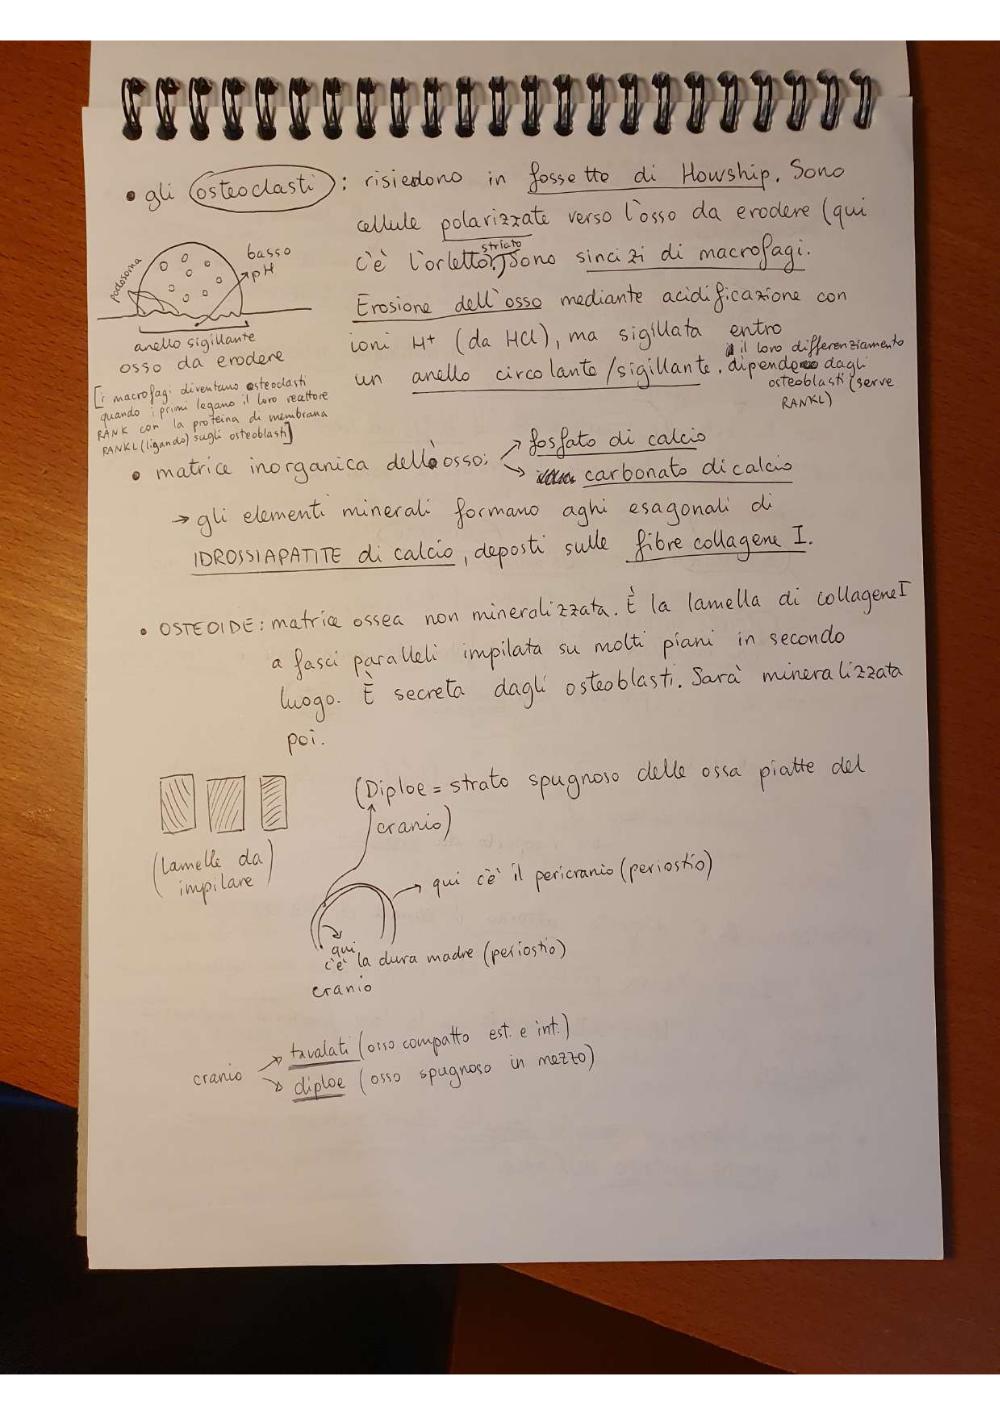 • gli osteoclasti: risiedono in fossette di Howship. Sono
cellule polarizzate verso l'osso da erodere (qui
c'è l'orletto striato). Sono sincizi di macrofagi.
Erosione dell'osso mediante acidificazione con
ioni H+ (da HCl), ma sigillata entro
un anello circolante/sigillante.
il loro differenziamento
dipende dagli
osteoblasti (serve
RANKL)
podosoma
basso
pH
anello sigillante
osso da erodere
[i macrofagi diventano osteoclasti
quando i primi legano il loro recettore
RANK con la proteina di membrana
RANKL (ligando) sugli osteoblasti]
• matrice inorganica dell'osso: → fosfato di calcio
→ carbonato di calcio
→ gli elementi minerali formano aghi esagonali di
IDROSSIAPATITE di calcio, deposti sulle fibre collagene I.
• OSTEOIDE: matrice ossea non mineralizzata. È la lamella di collagene I
a fasci paralleli impilata su molti piani in secondo
luogo. È secreta dagli osteoblasti. Sarà mineralizzata
poi.
(Diploe = strato spugnoso delle ossa piatte del
cranio)
(lamelle da
impilare)
→ qui c'è il pericranio (periostio)
qui
c'è la dura madre (periostio)
cranio
cranio → tavolati (osso compatto est. e int.)
→ diploe (osso spugnoso in mezzo)